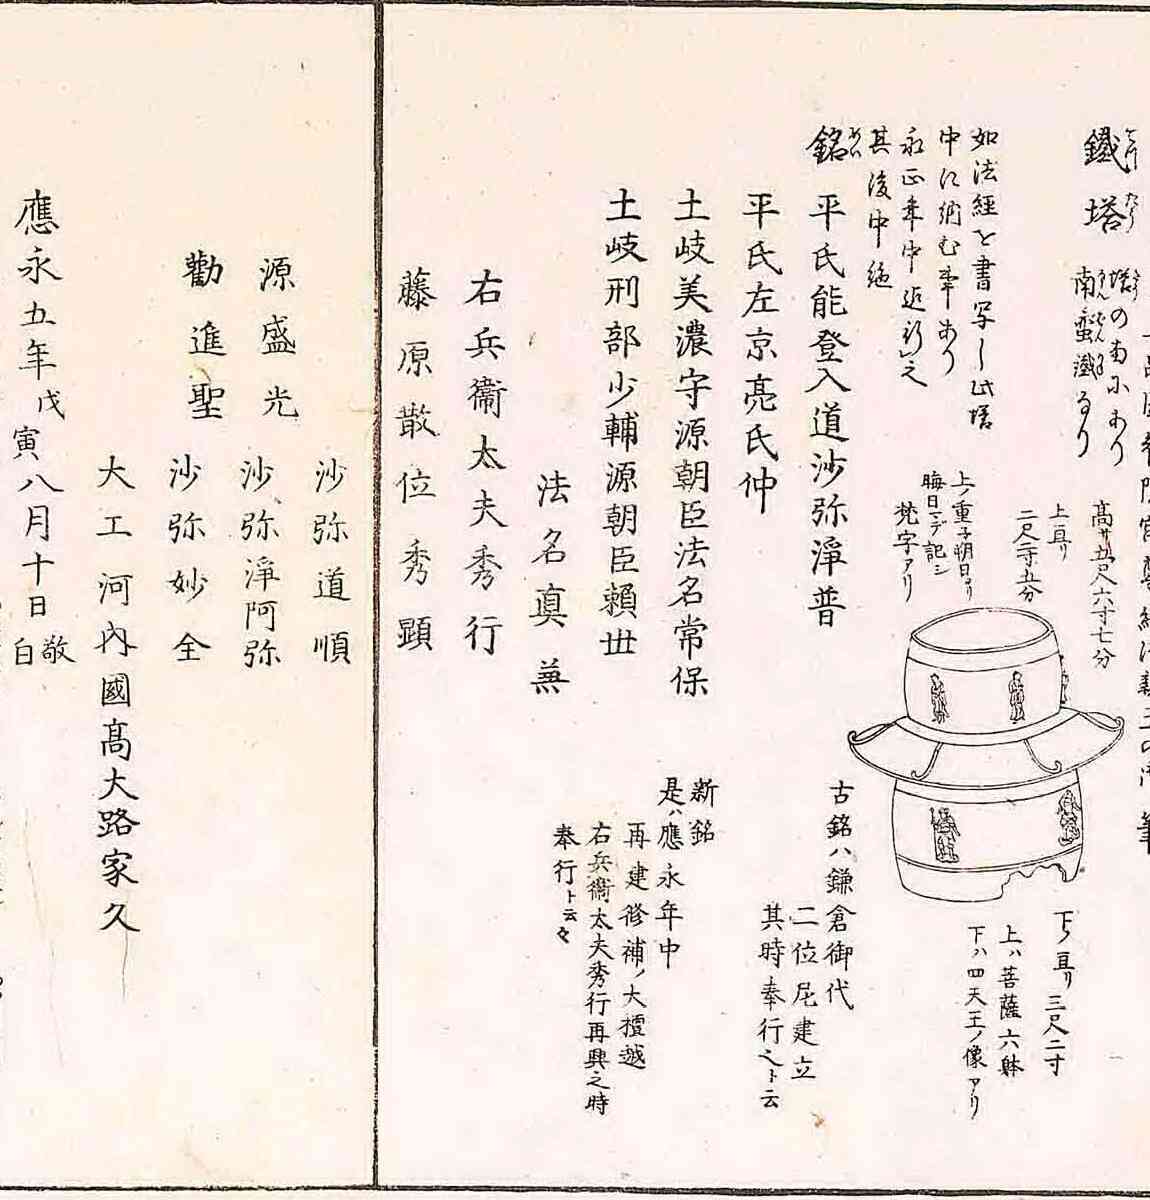 鐵塔
塔のまへにあり
南蛮鐵なり
如法経を書写し此塔
中に納む事あり
永正年中迄行之
其後中絶
高サ五尺六寸七分
上亘リ
二尺二寸五分
上ノ重子朔日ヨリ
晦日マデ記シ
梵字アリ
下ノ亘リ三尺二寸
上ハ菩薩六躰
下ハ四天王ノ像アリ
銘 平氏能登入道沙弥淨普
平氏左京亮氏仲
土岐美濃守源朝臣法名常保
土岐刑部少輔源朝臣頼世
法名真兼
右兵衞太夫秀行
藤原散位秀顕
古銘ハ鎌倉御代
二位尼建立
其時奉行之ト云
新銘
是ハ應永年中
再建修補ノ大檀越
右兵衞太夫秀行再興之時
奉行ト云々
沙弥道順
源盛光 沙弥淨阿弥
勸進聖 沙弥妙全
大工河内國高大路家久
應永五年戊寅八月十日敬白